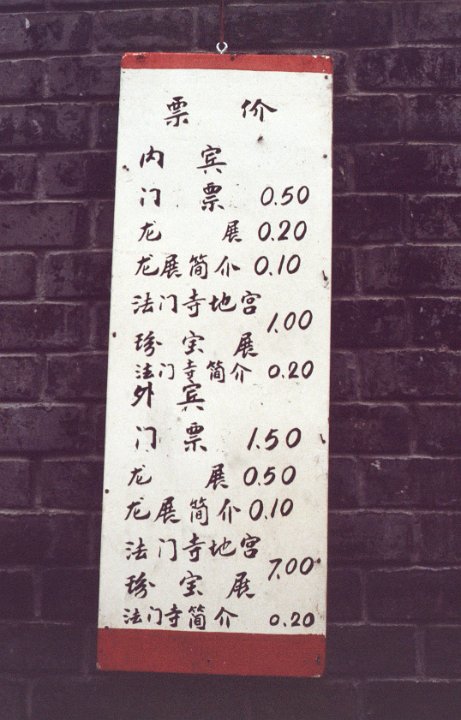 票 价
内 宾
门 票 0.50
龙 展 0.20
龙展简介 0.10
法门寺地宫
珍 宝 展 1.00
法门寺简介 0.20
外 宾
门 票 1.50
龙 展 0.50
龙展简介 0.10
法门寺地宫
珍 宝 展 7.00
法门寺简介 0.20